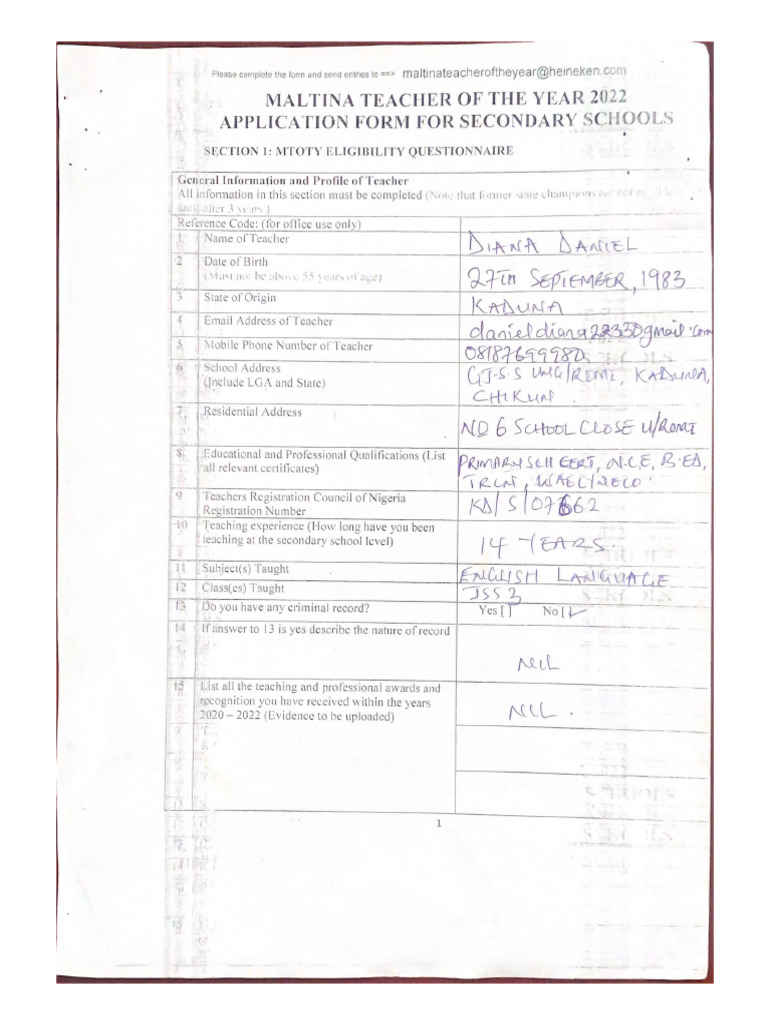 Please complete the form and send entries to ==> maltinateacheroftheyear@heineken.com
MALTINA TEACHER OF THE YEAR 2022
APPLICATION FORM FOR SECONDARY SCHOOLS
SECTION 1: MTOTY ELIGIBILITY QUESTIONNAIRE
General Information and Profile of Teacher
All information in this section must be completed (Note that former state champions are not eligible
until after 3 years )
Reference Code: (for office use only)
1 Name of Teacher DIANA DANIEL
2 Date of Birth
(Must not be above 55 years of age) 27TH SEPTEMBER, 1983
3 State of Origin KADUNA
4 Email Address of Teacher danieldiana22330gmail.com
5 Mobile Phone Number of Teacher 08187699980
6 School Address G.J.S.S UNG/ROMI, KADUNA,
(Include LGA and State) CHIKUN.
7 Residential Address NO 6 SCHOOL CLOSE U/ROMI
8 Educational and Professional Qualifications (List PRIMARY SCH CERT, N.C.E, B.ED,
all relevant certificates) TRCN, WAEC/NECO.
9 Teachers Registration Council of Nigeria
Registration Number KD/S/07662
10 Teaching experience (How long have you been
teaching at the secondary school level) 14 YEARS.
11 Subject(s) Taught ENGLISH LANGUAGE
12 Class(es) Taught JSS 3
13 Do you have any criminal record? Yes [ ] No [✓
14 If answer to 13 is yes describe the nature of record
NIL
15 List all the teaching and professional awards and
recognition you have received within the years NIL.
2020 – 2022 (Evidence to be uploaded)
1